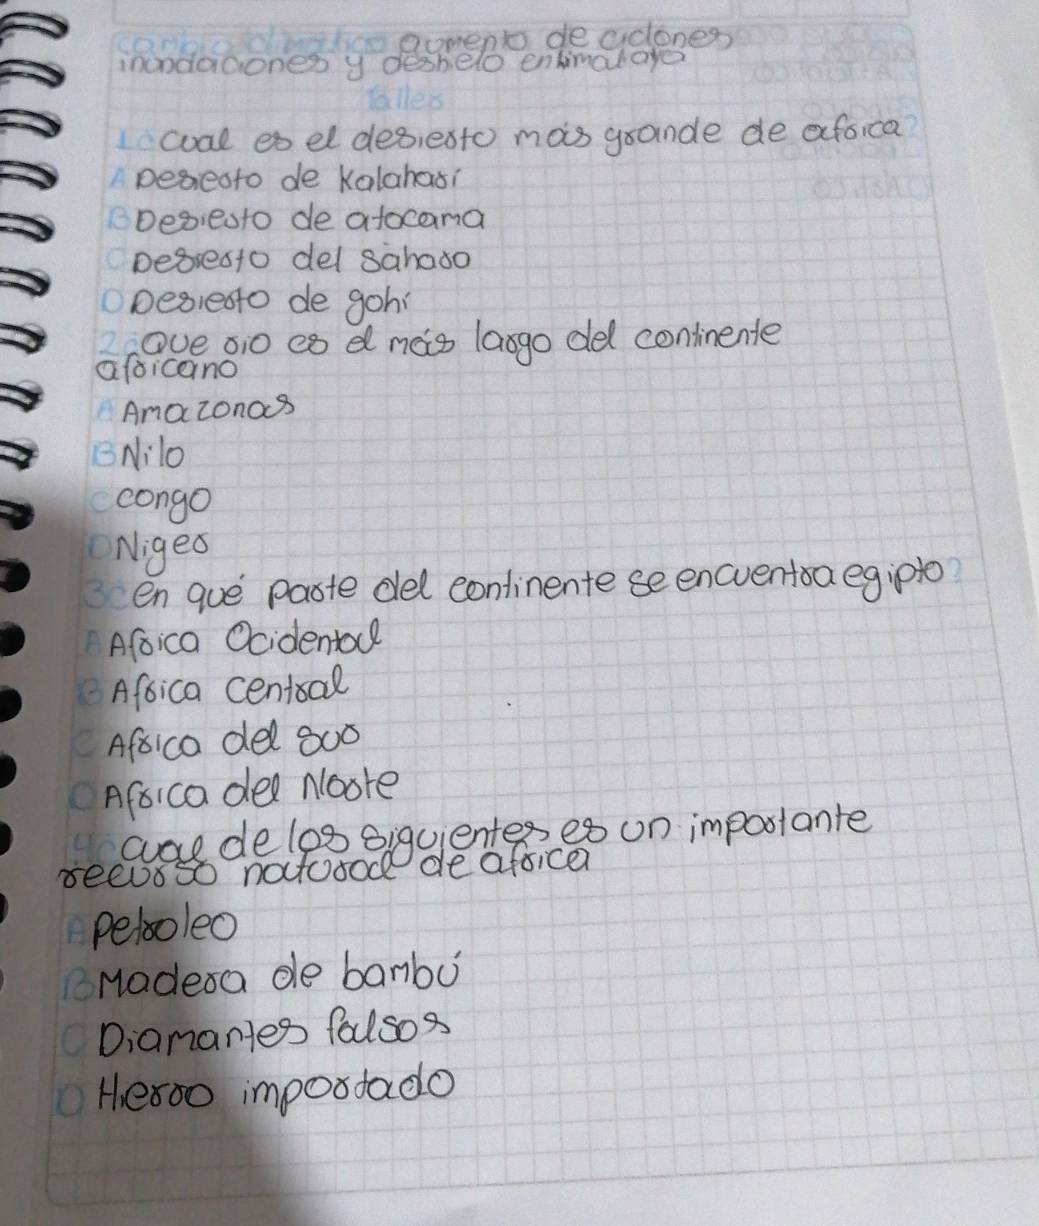 cambio climatico aumento de ciclones
inundaciones y deshielo en himalaya
Taller
1¿cual es el desierto más grande de africa?
A Desierto de Kalahari
B Desierto de atacama
C Desierto del sahara
D Desierto de gohi
2¿Que rio es el más largo del continente
africano
A Amazonas
B Nilo
C congo
D Niger
3¿en qué parte del continente se encuentra egipto?
A Africa Ocidental
B Africa central
C Africa del sur
D Africa del Norte
4¿cual de los siguientes es un importante
recurso natural de africa
A petroleo
B Madera de bambú
C Diamantes falsos
D Hierro importado